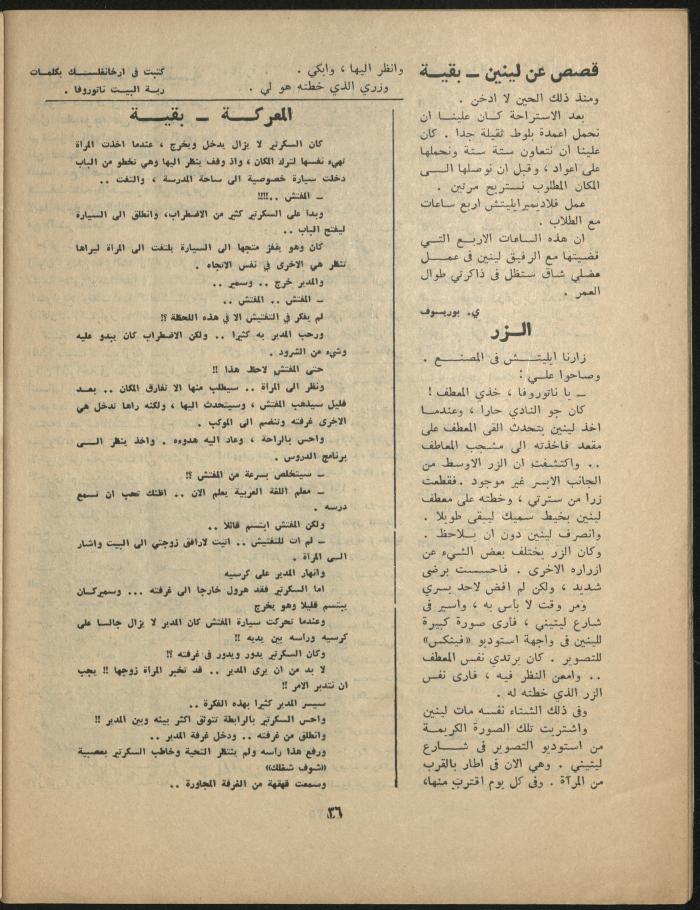 قصص عن لينين ــ بقيـة
ومنذ ذلك الحين لا ادخن .
بعد الاستراحة كـان علينـا ان
نحمل اعمدة بلوط ثقيلة جدا . كان
علينا أن نتعاون ستة ستة ونحملها
على اعواد ، وقبل ان نوصلها الــى
المكان المطلوب نستريح مرتين .
عمل فلاديميرايليتش اربع ساعات
مع الطلاب .
ان هذه الساعات الاربع التــي
قضيتها مع الرفيق لينين في عمـــل
عضلي شاق ستظل في ذاكرتي طوال
العمر .
ي. بوريسوف
الــزر
زارنا ايليتــش في المصنـع .
وصاحوا علــي :
ــ يا ناتوروفا ، خذي المعطف !
كان جو النادي حارا ، وعندمـا
اخذ لينين يتحدث القى المعطف على
مقعد فاخذته الى مشجب المعاطف
.. واكتشفت ان الزر الاوسط من
الجانب الايسر غير موجود .فقطعت
زرا من سترتي ، وخطته على معطف
لينين بخيط سميك ليبقى طويلا .
وانصرف لينين دون ان يــلاحظ .
وكان الزر يختلف بعض الشيء عن
ازراره الاخرى . فاحسست برضى
شديد ، ولكن لم افض لاحد بسري
ومر وقت لا بأس به ، واسير في
شارع ليتيني ، فارى صورة كبيرة
للينين في واجهة استوديو «فينكس»
للتصوير . كان يرتدي نفس المعطف
.. وامعن النظر فيه ، فارى نفس
الزر الذي خطته له .
وفي ذلك الشتاء نفسه مات لينين
واشتريت تلك الصورة الكريمـة
من استوديو التصوير في شــارع
ليتيني . وهي الان في اطار بالقرب
من المرآة . وفي كل يوم اقترب منها،
وانظر اليها ، وابكي .
وزري الذي خطته هو لي .
كتبت في ارخانفلستـك بكلمات
ربة البيت ناتوروفا .
المعركــة ــ بقيــة
كان السكرتير لا يزال يدخل ويخرج ، عندما اخذت المرأة
تهيء نفسها لترك المكان ، واذ وقف ينظر اليها وهي تخطو من الباب
دخلت سيارة خصوصية الى ساحة المدرسة ، والتفت ..
ــ المفتش ..!!!!
وبدا على السكرتير كثير من الاضطراب، وانطلق الى السيارة
ليفتح الباب ..
كان وهو يقفز متجها الى السيارة يلتفت الى المرأة ليراها
تنظر هي الاخرى في نفس الاتجاه .
والمدير خرج .. وسمير ..
ــ المفتش .. المفتش ..
لم يفكر في التفتيش الا في هذه اللحظة ؟!
ورحب المدير به كثيرا .. ولكن الاضطراب كان يبدو عليه
وشيء من الشرود .
حتى المفتش لاحظ هذا !!
ونظر الى المرأة .. سيطلب منها الا تغارق المكان .. بعـد
قليل سيذهب المفتش ، وسيتحدث اليها ، ولكنه راها تدخل هي
الاخرى غرفته وتنضم الى الموكب .
واحس بالراحة ، وعاد اليه هدوءه . واخذ ينظر الــى
برنامج الدروس .
ــ سيتخلص بسرعة من المفتش ؟!
ــ معلم اللغة العربية يعلم الان .. اظنك تحب ان تسمع
درسه .
ولكن المفتش ابتسم قائلا ..
ــ لم ات للتفتيش .. اتيت لارافق زوجتي الى البيت واشار
الــى المرأة .
وانهار المدير على كرسيه
اما السكرتير فقد هرول خارجا الى غرفته ... وسميركـان
يبتسم قليلا وهو يخرج
وعندما تحركت سيارة المفتش كان المدير لا يزال جالسا على
كرسيه وراسه بين يديه !!
وكان السكرتير يدور ويدور في غرفته ؟!
لا بد من ان يرى المدير .. قد تخبر المرأة زوجها !! يجب
ان نتدبر الامر !!
سيسر المدير كثيرا بهذه الفكرة ..
واحس السكرتير بالرابطة تتوثق اكثر بينه وبين المدير !!
وانطلق من غرفته .. ودخل غرفة المدير ..
ورفع هذا راسه ولم ينتظر التحية وخاطب السكرتير بعصبية
«شوف شغلك»
وسمعت قهقهة من الغرفة المجاورة ..
٣٦